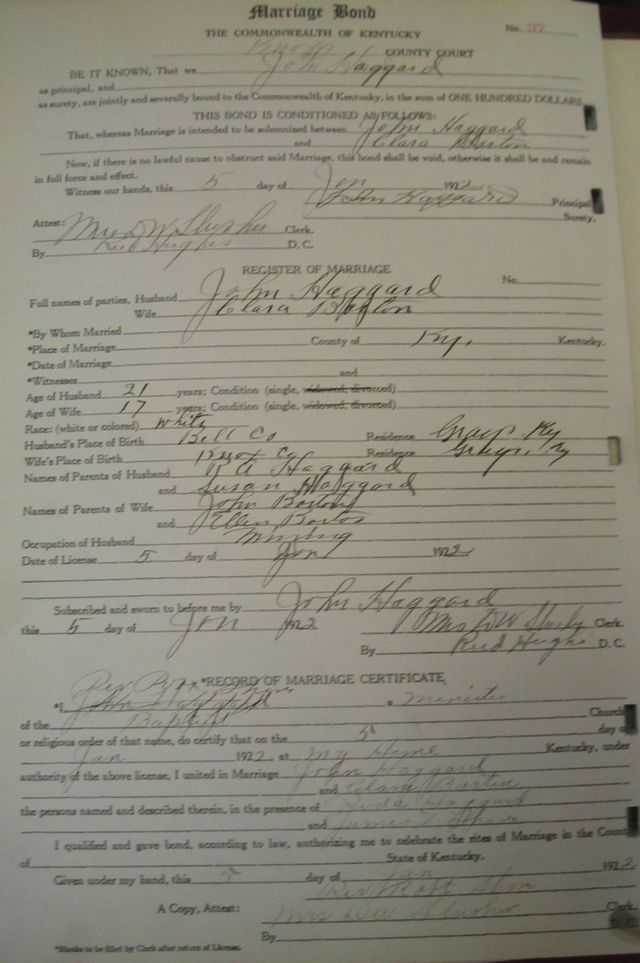 Marriage Bond
THE COMMONWEALTH OF KENTUCKY No.
Knox COUNTY COURT
BE IT KNOWN, That we John Haggard
as principal, and
as surety, are jointly and severally bound to the Commonwealth of Kentucky, in the sum of ONE HUNDRED DOLLARS
THIS BOND IS CONDITIONED AS FOLLOWS:
That, whereas Marriage is intended to be solemnized between John Haggard
and Clara
Now, if there is no lawful cause to obstruct said Marriage, this bond shall be void, otherwise it shall be and remain
in full force and effect.
Witness our hands, this 5 day of Jan 1922
John Haggard Principal
Surety.
Attest: Mrs D W Slusher Clerk.
By Reed Hughes D. C.
REGISTER OF MARRIAGE
No.
Full names of parties, Husband John Haggard
Wife Clara
*By Whom Married
*Place of Marriage County of Ky, Kentucky.
*Date of Marriage
*Witnesses and
Age of Husband 21 years; Condition (single, widowed, divorced)
Age of Wife 17 years; Condition (single, widowed, divorced)
Race: (white or colored) White
Husband's Place of Birth Bell Co Residence Grays Ky
Wife's Place of Birth Knox Co Residence Grays, Ky
Names of Parents of Husband R A Haggard
and Susan Haggard
Names of Parents of Wife John
and Ellen
Occupation of Husband Mining
Date of License 5 day of Jan 1922
Subscribed and sworn to before me by John Haggard
this 5 day of Jan 1922 Mrs D W Slusher Clerk.
By Reed Hughes D. C.
*RECORD OF MARRIAGE CERTIFICATE
*I, Rev John Haggard a Minister
of the Baptist Church
or religious order of that name, do certify that on the 5 day of
Jan 1922, at My Home Kentucky, under
authority of the above license, I united in Marriage John Haggard
and Clara
the persons named and described therein, in the presence of Haggard
and James
I qualified and gave bond, according to law, authorizing me to celebrate the rites of Marriage in the County
of State of Kentucky.
Given under my hand, this 5 day of Jan 1922
Rev Robt
A Copy, Attest: Mrs D W Slusher Clerk.
By D. C.
*Blanks to be filled by Clerk after return of License.